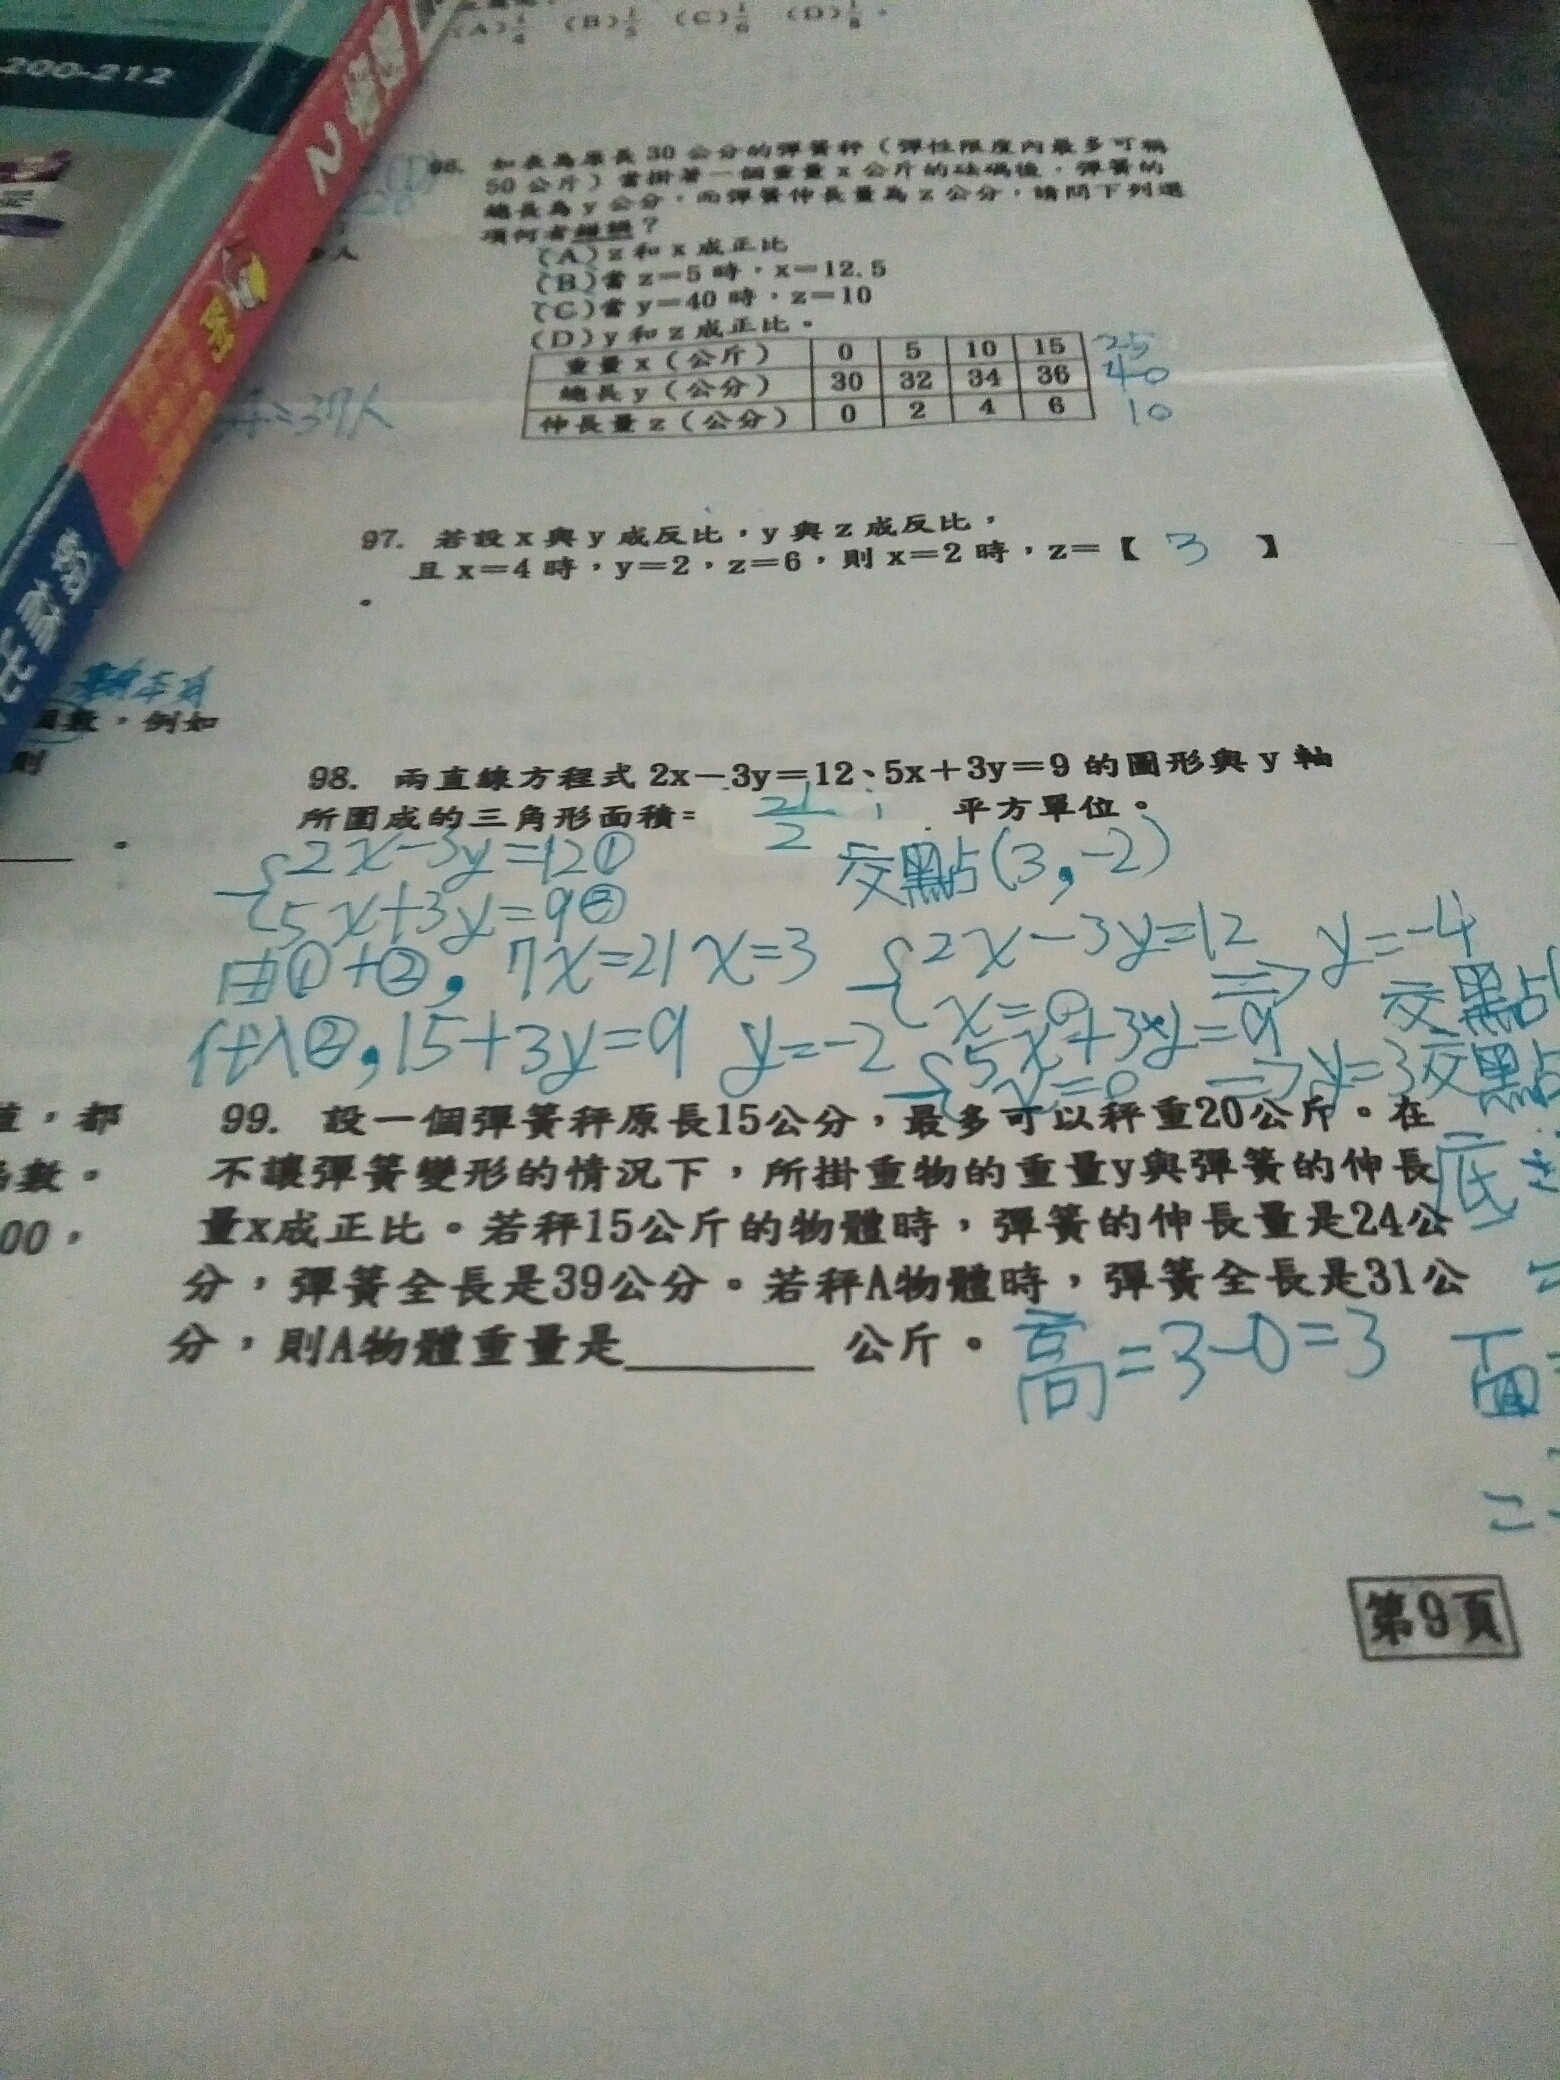 (A)1/4 (B)1/5 (C)1/6 (D)1/8。
200-212
2
96. 如表為原長 30 公分的彈簧秤（彈性限度內最多可稱
50 公斤）當掛著一個重量 x 公斤的砝碼後，彈簧的
總長為 y 公分，而彈簧伸長量為 z 公分，請問下列選
項何者錯誤？
(A) z 和 x 成正比
(B) 當 z＝5 時，x＝12.5
(C) 當 y＝40 時，z＝10
(D) y 和 z 成正比。
重量 x（公斤） 0 5 10 15 25
總長 y（公分） 30 32 34 36 40
伸長量 z（公分） 0 2 4 6 10
=37人
97. 若設 x 與 y 成反比，y 與 z 成反比，
且 x＝4 時，y＝2，z＝6，則 x＝2 時，z＝【 3 】
。
數，例如
則
98. 兩直線方程式 2x－3y＝12、5x＋3y＝9 的圖形與 y 軸
所圍成的三角形面積= 21/2 平方單位。
2x-3y=12① 交點(3,-2)
5x+3y=9②
由①+②, 7x=21 x=3 2x-3y=12 ⇒ y=-4
x=0 交點
代入②, 15+3y=9 y=-2 5x+3y=9
x=0 ⇒ y=3 交點
值，都
數。
00，
99. 設一個彈簧秤原長15公分，最多可以秤重20公斤。在
不讓彈簧變形的情況下，所掛重物的重量y與彈簧的伸長 底=
量x成正比。若秤15公斤的物體時，彈簧的伸長量是24公
分，彈簧全長是39公分。若秤A物體時，彈簧全長是31公
分，則A物體重量是______ 公斤。
高=3-0=3 面=
第9頁